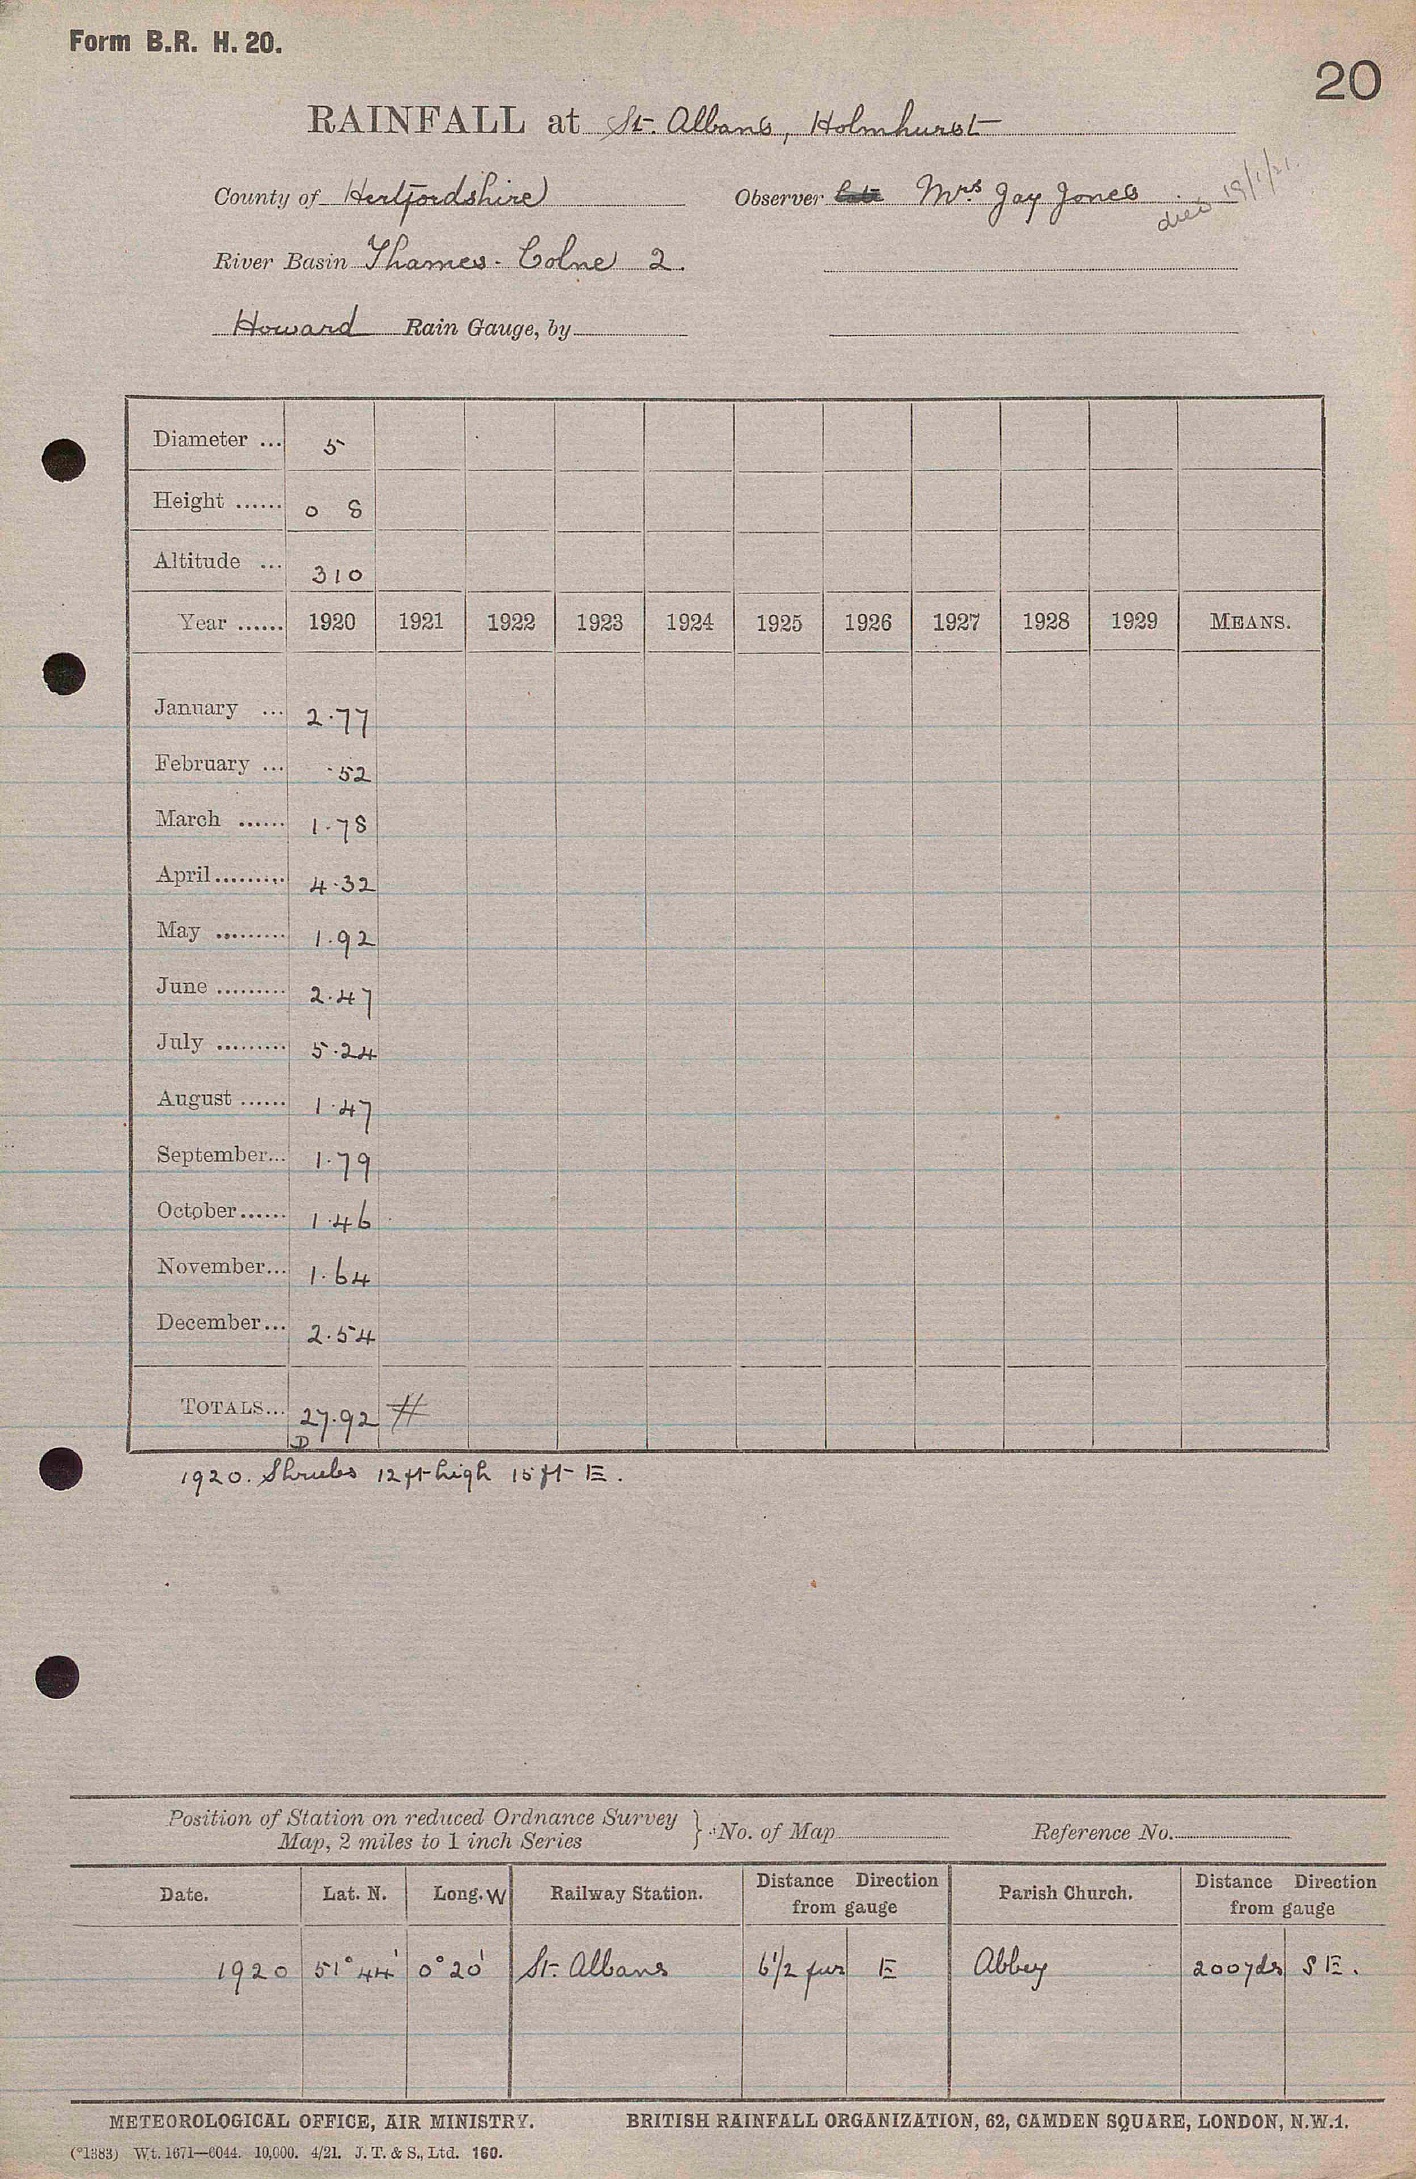 Form B.R. H. 20.
20
RAINFALL at St. Albans, Holmhurst
County of Hertfordshire Observer Mrs Jay Jones died 19/1/21.
River Basin Thames - Colne 2.
Howard Rain Gauge, by
Diameter ... 5
Height ...... 0 8
Altitude ... 310
Year ...... 1920 1921 1922 1923 1924 1925 1926 1927 1928 1929 MEANS.
January ... 2.77
February ... .52
March ...... 1.78
April ......... 4.32
May ......... 1.92
June ......... 2.47
July ......... 5.24
August ...... 1.47
September... 1.79
October ...... 1.46
November... 1.64
December... 2.54
TOTALS... 27.92 #
D
1920. Shrubs 12 ft high 15 ft E.
Position of Station on reduced Ordnance Survey
Map, 2 miles to 1 inch Series } No. of Map Reference No.
Date. Lat. N. Long. W Railway Station. Distance Direction from gauge Parish Church. Distance Direction from gauge
1920 51° 44' 0° 20' St. Albans 6 1/2 fur E Abbey 200 yds S E.
METEOROLOGICAL OFFICE, AIR MINISTRY. BRITISH RAINFALL ORGANIZATION, 62, CAMDEN SQUARE, LONDON, N.W.1.
(*1383) Wt. 1671—6044. 10,000. 4/21. J. T. & S., Ltd. 160.